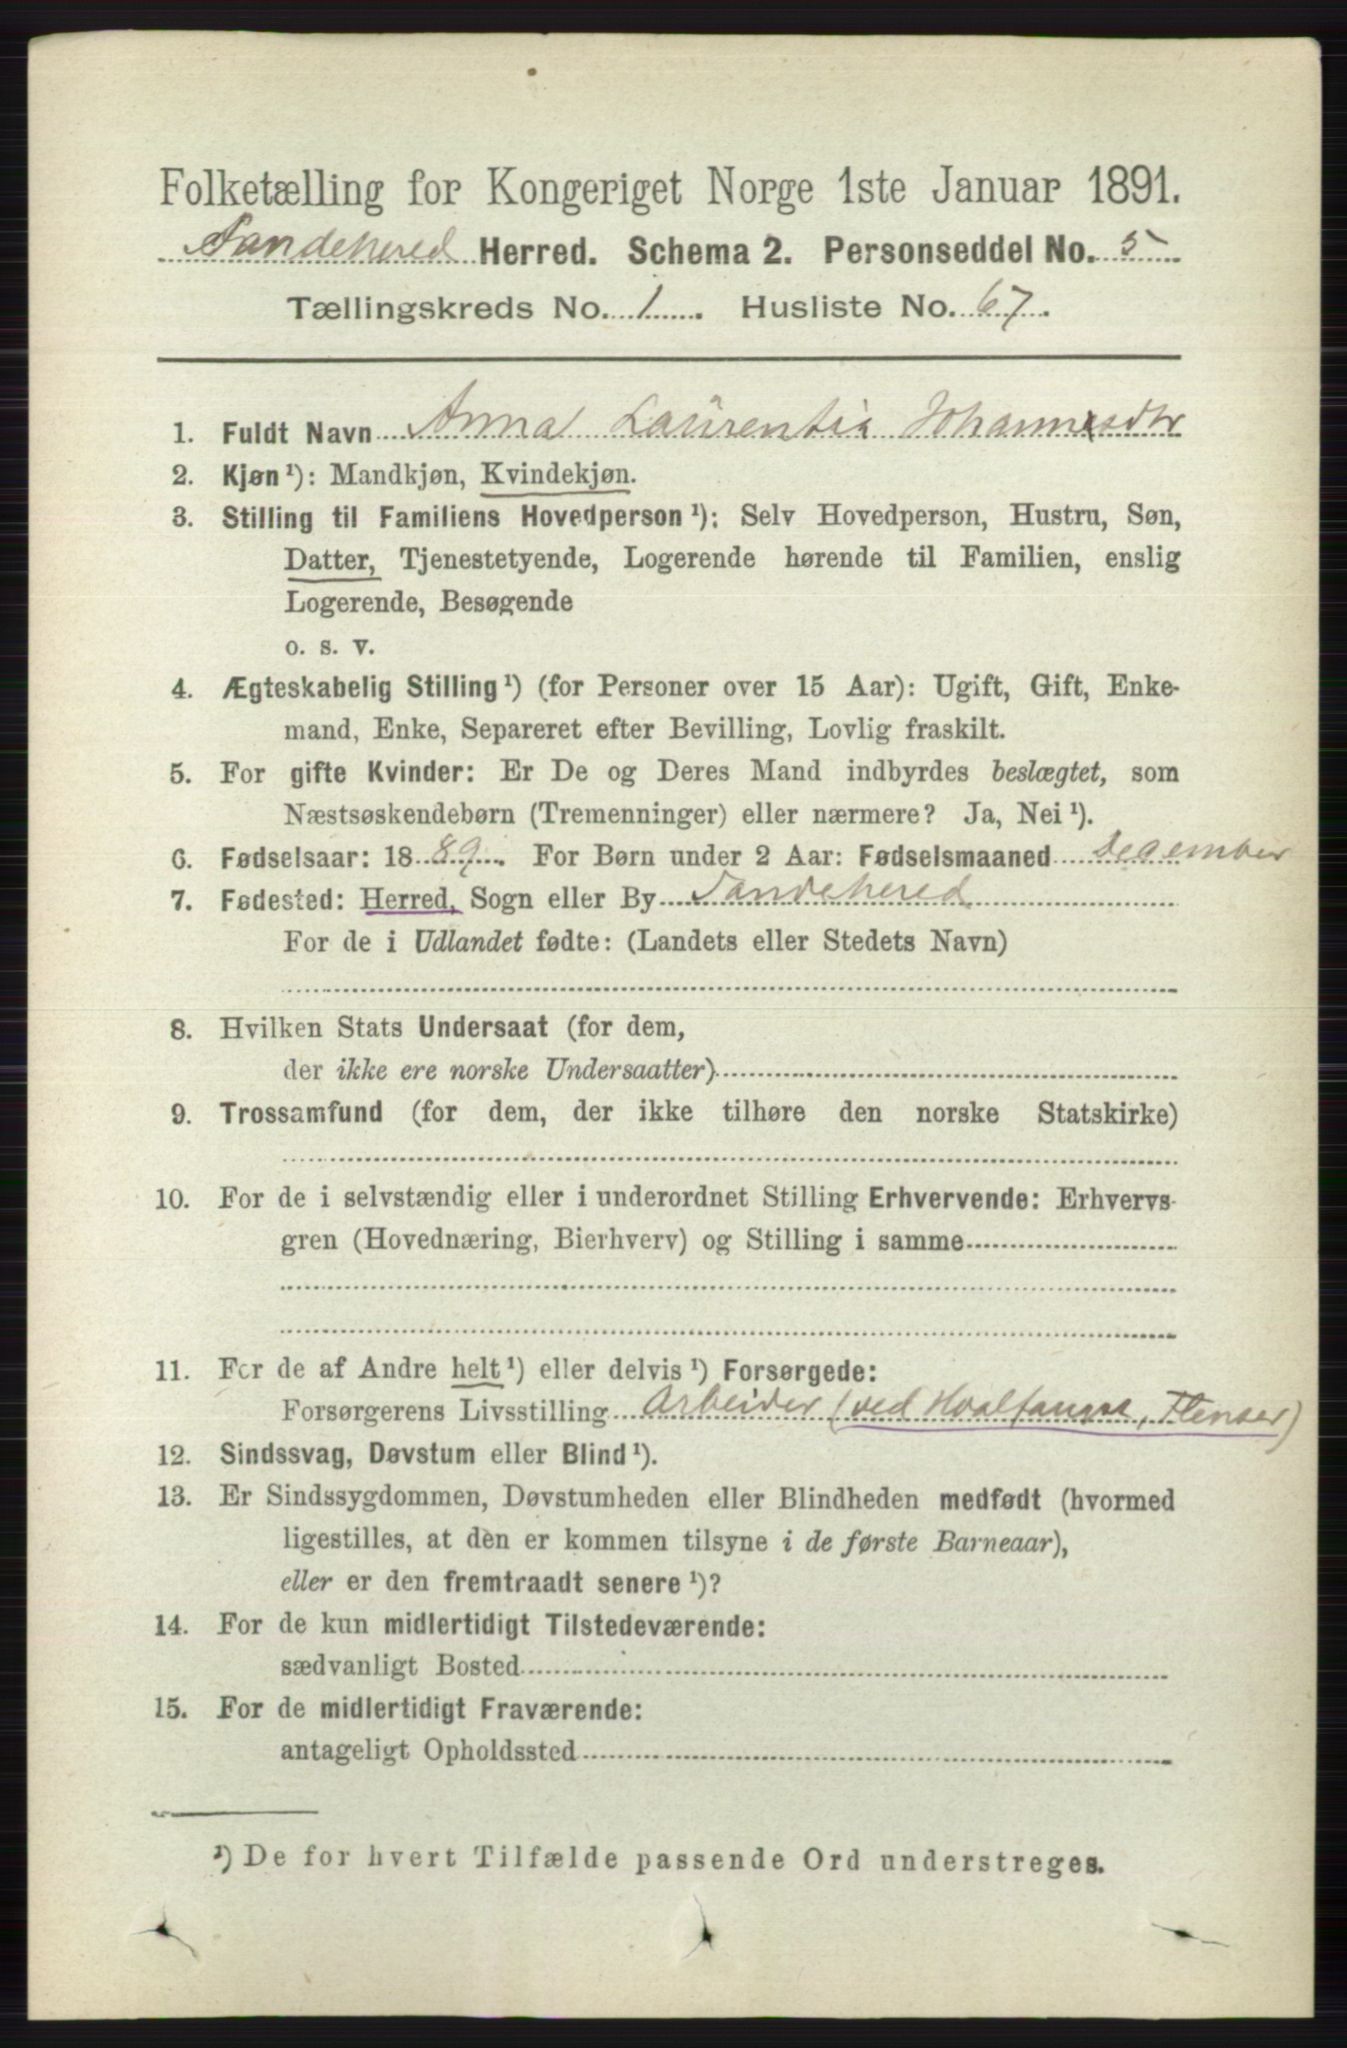 Folketælling for Kongeriget Norge 1ste Januar 1891.
Sandehered Herred. Schema 2. Personseddel No. 5
Tællingskreds No. 1. Husliste No. 67.
1. Fuldt Navn Anna Laurentia Johannesdtr
2. Kjøn ¹): Mandkjøn, Kvindekjøn.
3. Stilling til Familiens Hovedperson ¹): Selv Hovedperson, Hustru, Søn,
Datter, Tjenestetyende, Logerende hørende til Familien, enslig
Logerende, Besøgende
o. s. v.
4. Ægteskabelig Stilling ¹) (for Personer over 15 Aar): Ugift, Gift, Enke-
mand, Enke, Separeret efter Bevilling, Lovlig fraskilt.
5. For gifte Kvinder: Er De og Deres Mand indbyrdes beslægtet, som
Næstsøskendebørn (Tremenninger) eller nærmere? Ja, Nei ¹).
6. Fødselsaar: 1889. For Børn under 2 Aar: Fødselsmaaned December
7. Fødested: Herred, Sogn eller By Sandehered
For de i Udlandet fødte: (Landets eller Stedets Navn)
8. Hvilken Stats Undersaat (for dem,
der ikke ere norske Undersaatter)
9. Trossamfund (for dem, der ikke tilhøre den norske Statskirke)
10. For de i selvstændig eller i underordnet Stilling Erhvervende: Erhvervs-
gren (Hovednæring, Bierhverv) og Stilling i samme
11. For de af Andre helt ¹) eller delvis ¹) Forsørgede:
Forsørgerens Livsstilling Arbeider (ved Hvalfangst, Flenser)
12. Sindssvag, Døvstum eller Blind ¹).
13. Er Sindssygdommen, Døvstumheden eller Blindheden medfødt (hvormed
ligestilles, at den er kommen tilsyne i de første Barneaar),
eller er den fremtraadt senere ¹)?
14. For de kun midlertidigt Tilstedeværende:
sædvanligt Bosted
15. For de midlertidigt Fraværende:
antageligt Opholdssted
¹) De for hvert Tilfælde passende Ord understreges.